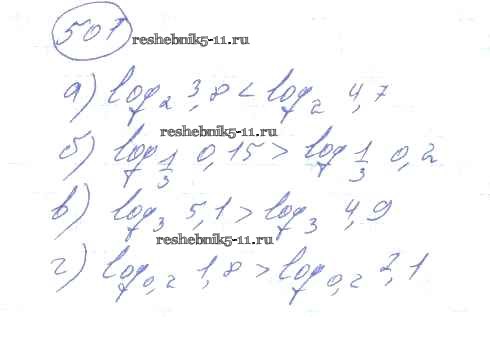 501
reshebnik5-11.ru
а) log₂ 3,8 < log₂ 4,7
reshebnik5-11.ru
б) log_{1/3} 0,15 > log_{1/3} 0,2
в) log₃ 5,1 > log₃ 4,9
reshebnik5-11.ru
г) log_{0,2} 1,8 > log_{0,2} 2,1